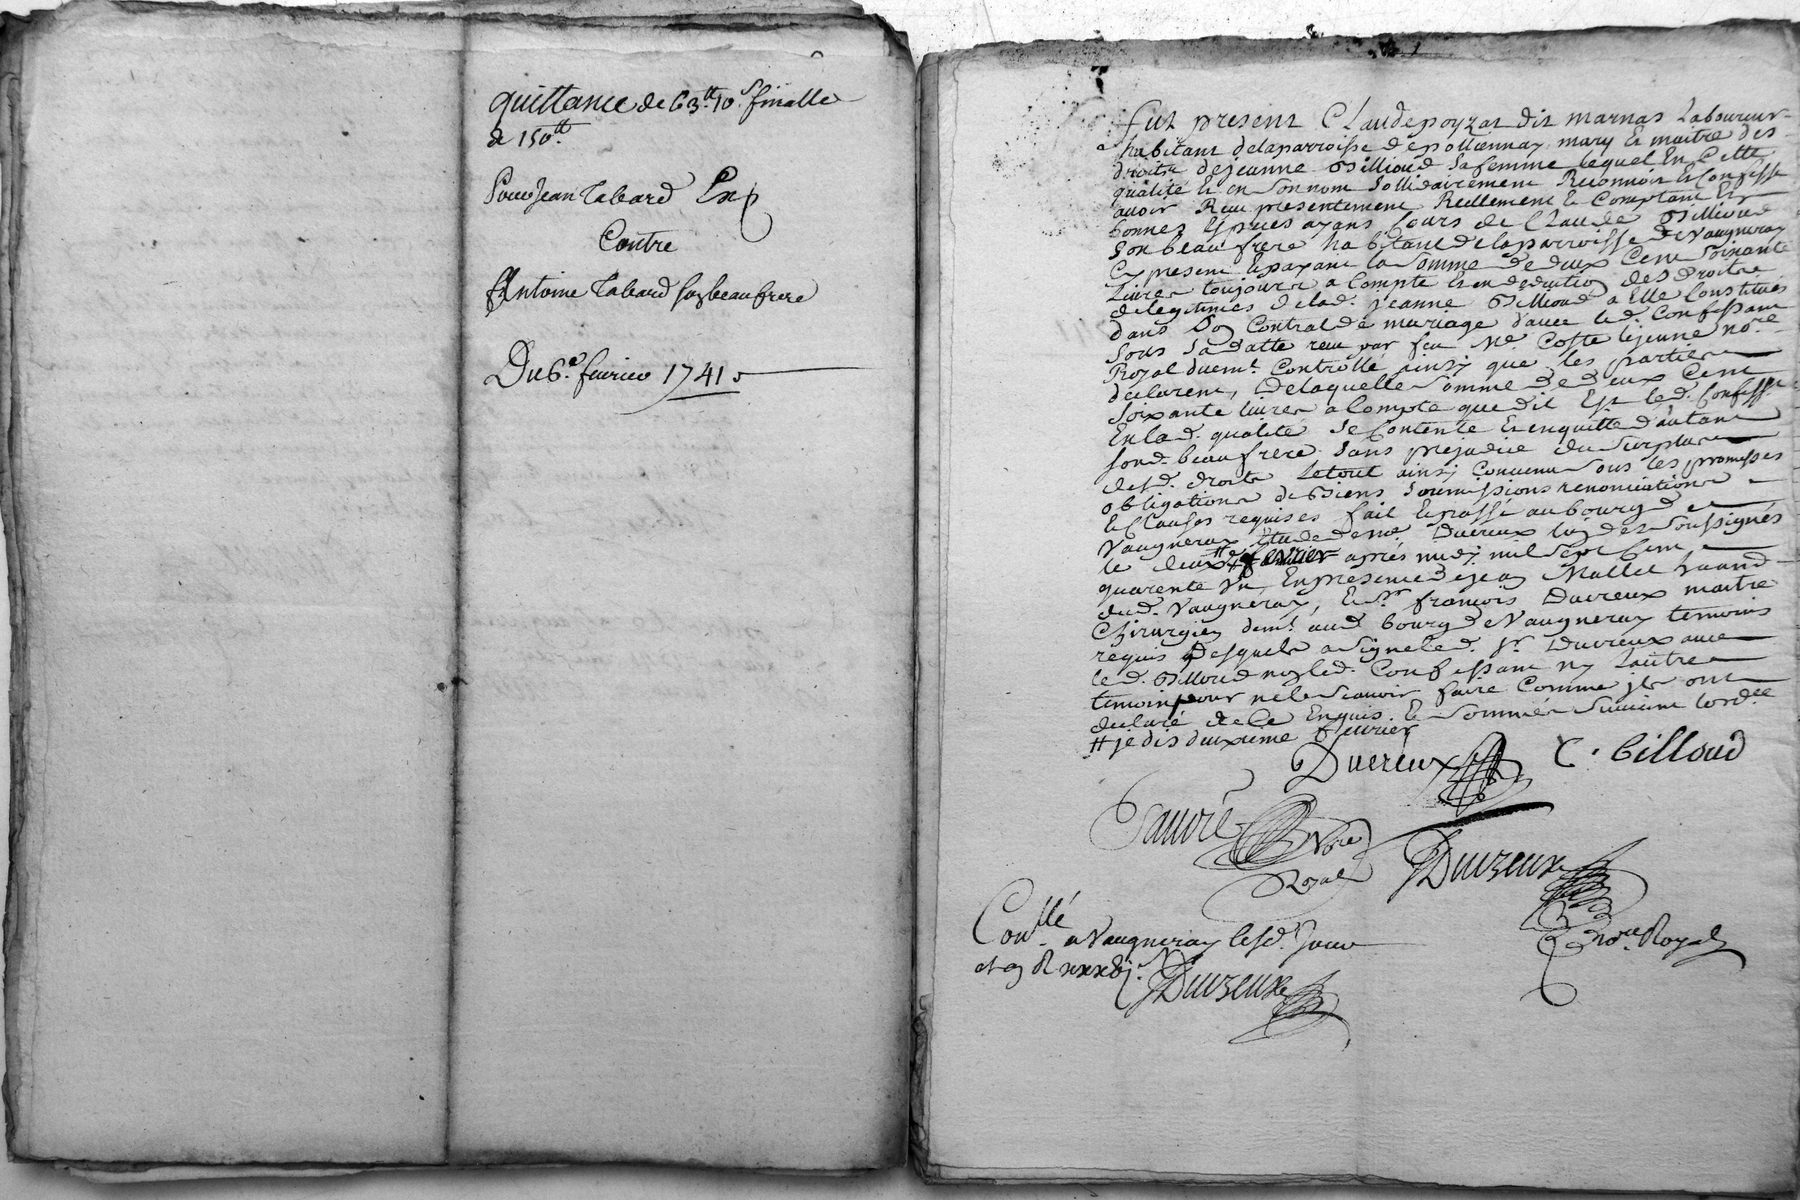 quittance de 63.tt 10.s finalle
de 150.tt
Pour Jean Tabard Exp
Contre
Antoine Tabard son beau frere
Du 6.e fevrier 1741
fut present Claude poyzat dit marnas Laboureur
habitant delaparroisse de pollionnay mary et maitre des
droits dejeanne Billioud safemme lequel En Cette
qualité et en son nom sollidairement Reconnoit et Confesse
avoir Reçu presentement Reellement et Comptant En
bonnes Especes ayans Cours de Claude Billioud
son beau frere habitant delaparroisse de Vaugneray
Cy present Et payant la somme de deux Cent soixante
Livres toujours a Compte et en deduction des droits
delegitimes delad. jeanne Billioud a Elle Constitués
dans son Contrat de mariage avec led. Confessant
sous sa datte reçu par feu Me. Coste lejeune no.re
Royal duem.t Controllé ainsy que les parties
declarent, Delaquelle somme de deux Cent
soixante livres a Compte que dit Est led. Confess.t
En lad. qualité se Contente et enquitte d'autant
sond. beau frere sans prejudice du surplus
desd. droits Letout ainsy Convenu sous les promesses
obligations de Biens soumissions renonciations
et Clauses requises fait Et passé au bourg de
Vaugneray Etude de no.e Ducreux luy des soussignés
le deux.e fevrier après midy mil sept Cent
quarente un, En presence de jean Mallet
dud. Vaugneray, et S.r francois Ducreux maitre
Chirurgien dem.t aud. bourg de Vaugneray temoins
requis Desquels a signé led. S.r Ducreux avec
led. Billioud non led. Confessant ny Lautre
temoin pour ne le scavoir faire Comme ils ont
declaré de ce Enquis et sommés suivant lord.ce
# je dis deuxieme fevrier
Ducreux C. billoud
No.re
Royal
Ducreux
no.re Royal
Con.llé a Vaugneray lesd. Jour
et an R xxx
Ducreux